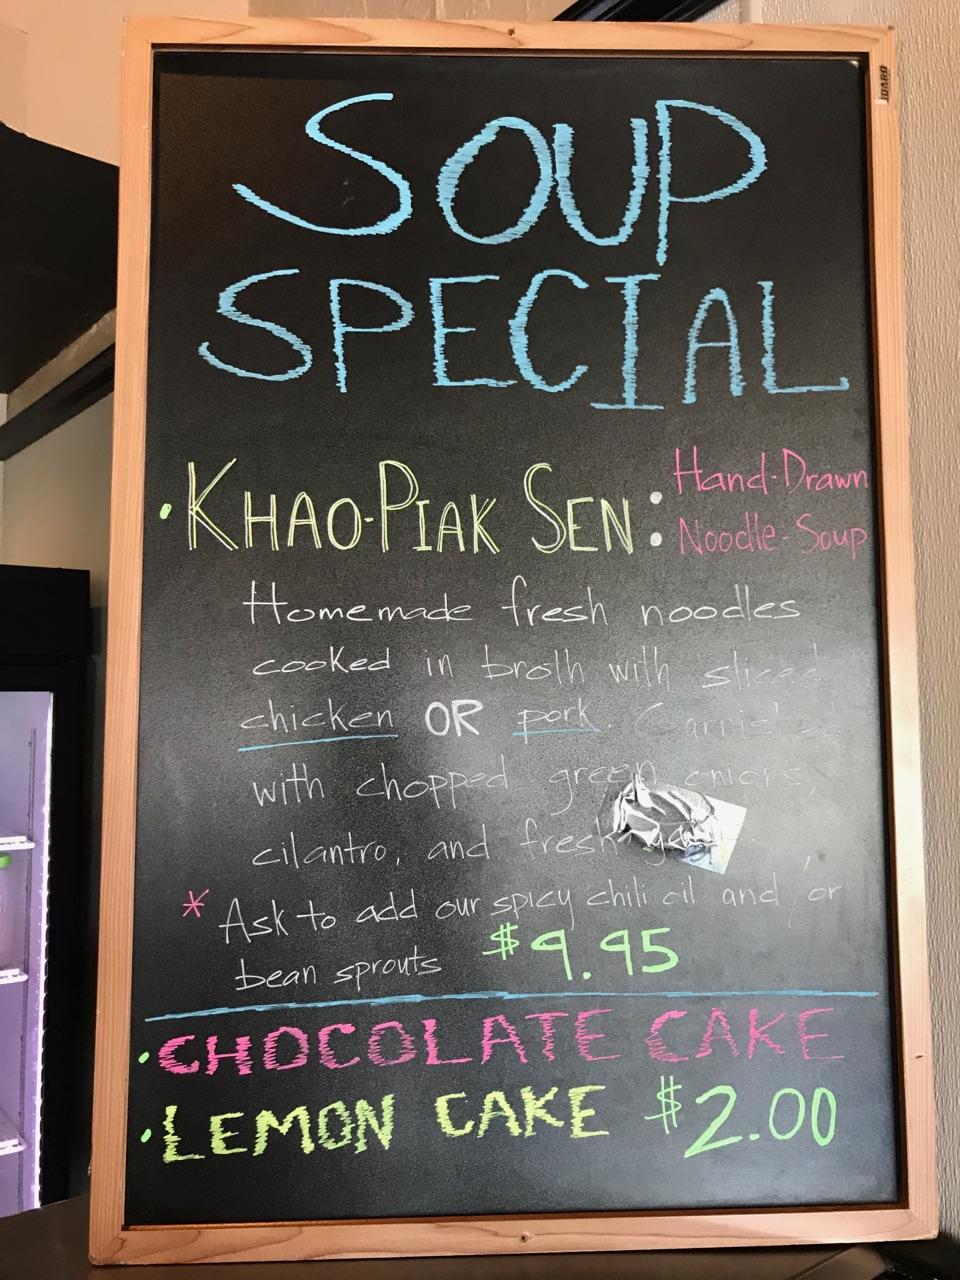 SOUP
SPECIAL
• KHAO-PIAK SEN: Hand-Drawn
Noodle-Soup
Homemade fresh noodles
cooked in broth with sliced
chicken OR pork. Garnished
with chopped green onions,
cilantro, and fresh
* Ask to add our spicy chili oil and/or
bean sprouts $9.95
• CHOCOLATE CAKE
• LEMON CAKE $2.00